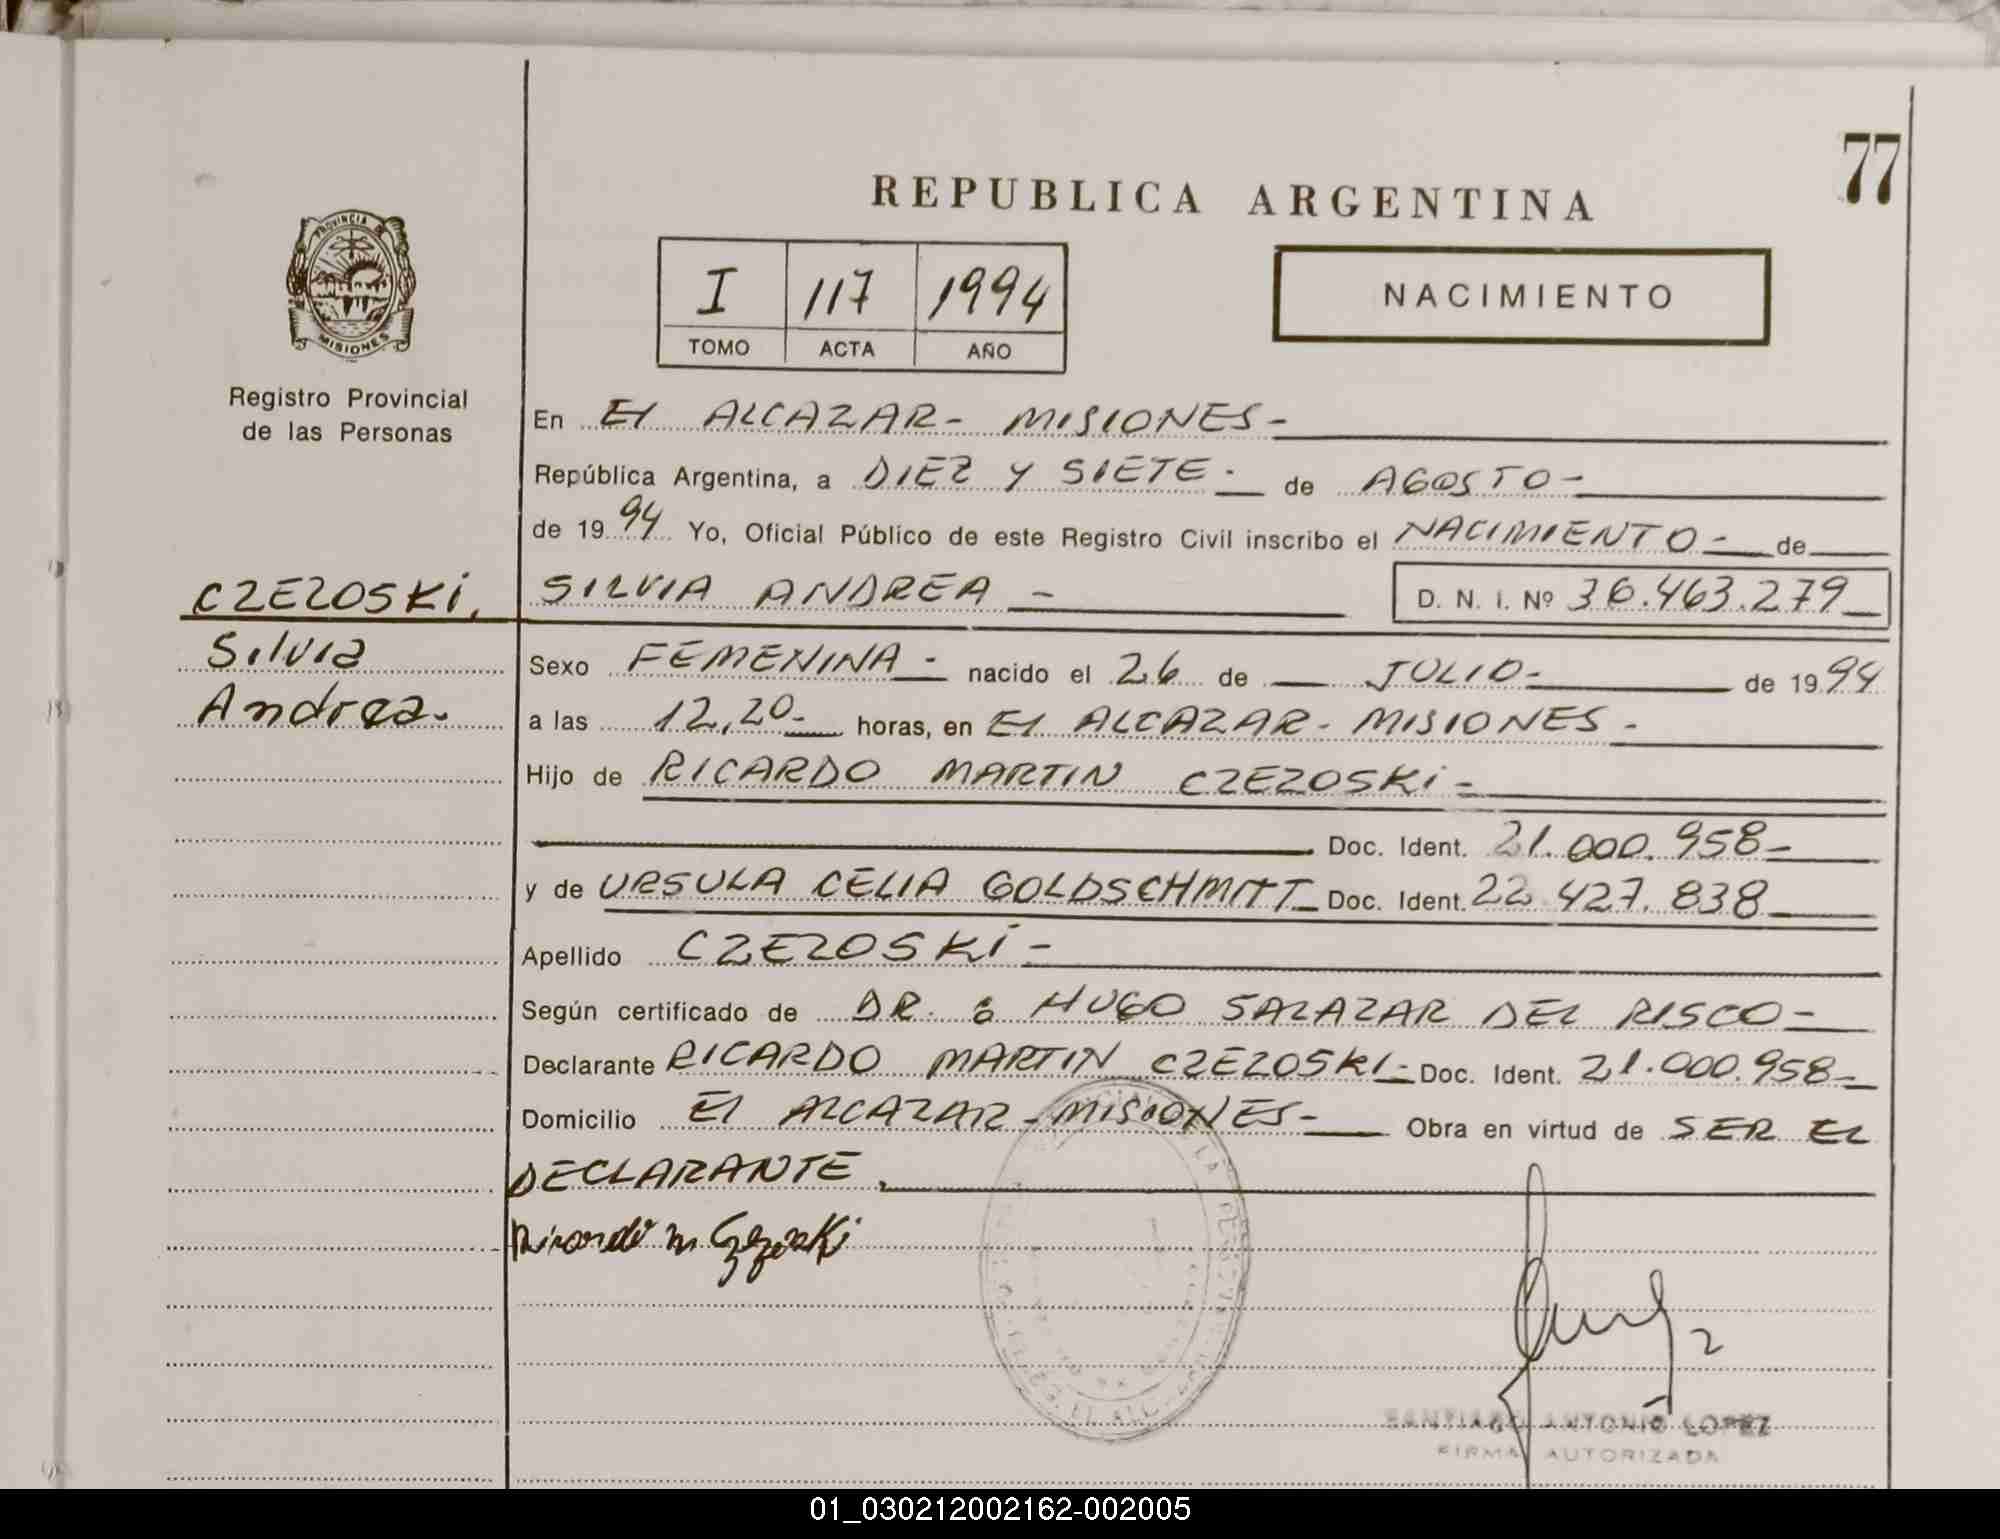 77
REPUBLICA ARGENTINA
PROVINCIA DE
MISIONES
I 117 1994
TOMO ACTA AÑO
NACIMIENTO
Registro Provincial
de las Personas
En El ALCAZAR - MISIONES -
República Argentina, a DIEZ Y SIETE - de AGOSTO -
de 1994 Yo, Oficial Público de este Registro Civil inscribo el NACIMIENTO - de
CZEZOSKI, SILVIA ANDREA - D. N. I. Nº 36.463.279
Silvia Sexo FEMENINA - nacido el 26 de JULIO - de 1994
Andrea. a las 12,20 - horas, en El ALCAZAR - MISIONES -
Hijo de RICARDO MARTIN CZEZOSKI -
Doc. Ident. 21.000.958 -
y de URSULA CELIA GOLDSCHMITT Doc. Ident. 22.427.838
Apellido CZEZOSKI -
Según certificado de DR. HUGO SALAZAR DEL RISCO -
Declarante RICARDO MARTIN CZEZOSKI - Doc. Ident. 21.000.958 -
Domicilio El ALCAZAR - MISIONES - Obra en virtud de SER EL
DECLARANTE.
Ricardo M Czezoski
SANTIAGO ANTONIO LOPEZ
FIRMA AUTORIZADA
01_030212002162-002005